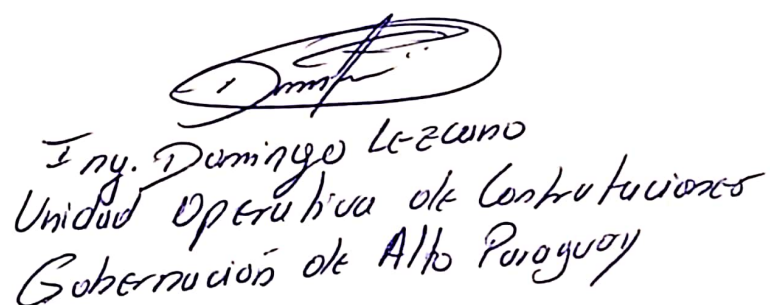 Ing. Domingo Lezcano
Unidad Operativa de Contrataciones
Gobernación de Alto Paraguay